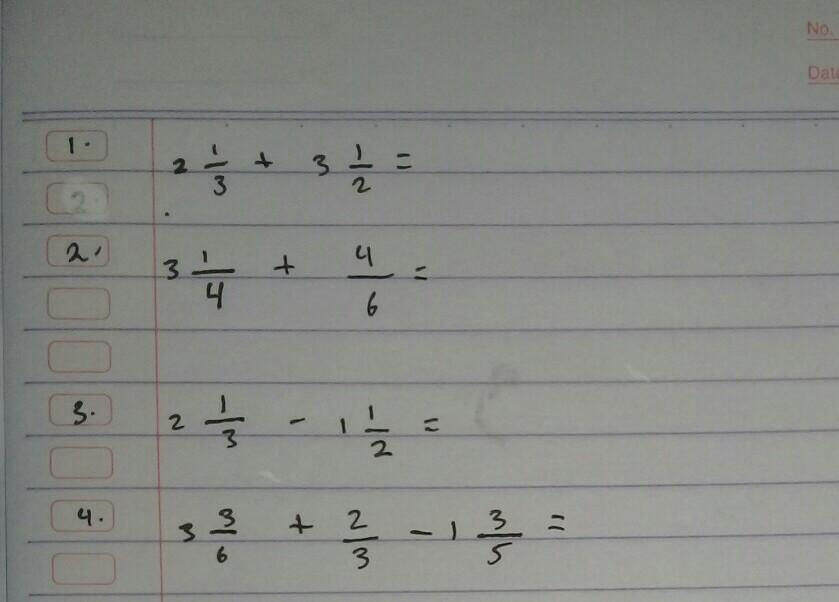 No.
Date
1. 2 1/3 + 3 1/2 =
2
2. 3 1/4 + 4/6 =
3. 2 1/3 - 1 1/2 =
4. 3 3/6 + 2/3 - 1 3/5 =